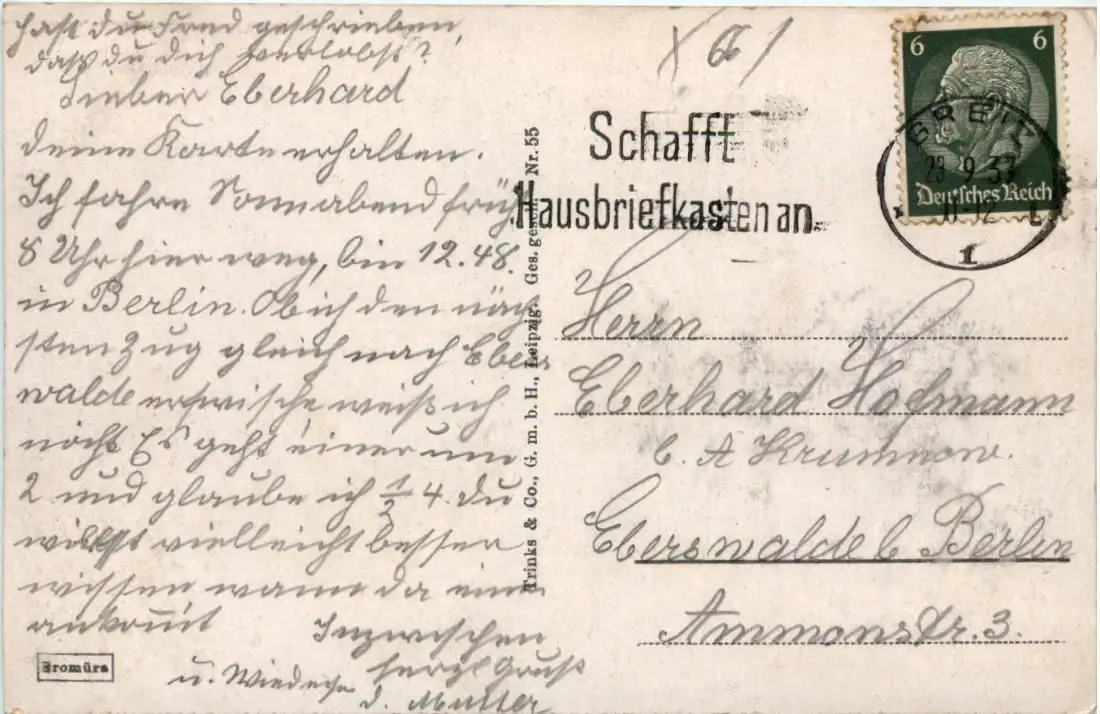 hast du Fred geschrieben,
dass du dich verlobst?
Lieber Eberhard
deine Karte erhalten.
Ich fahre Sonnabend früh
8 Uhr hier weg, bin 12.48.
in Berlin. Ob ich den näch
sten Zug gleich nach Ebers
walde erwische weiß ich
nicht Es geht einer um
2 und glaube ich ½ 4. Du
wirst vielleicht besser
wissen wann da einer
ankommt
Inzwischen
herzl Gruß
u. Wiederse
d. Mutter
Bromüra
Trinks & Co., G. m. b. H., Leipzig. Ges. gesch. Nr. 55
6 6
Deutsches Reich
GREIZ
29 9 33
1
Schafft
Hausbriefkasten an.
Herrn
Eberhard Hofmann
b. A Krumnow.
Eberswalde b Berlin
Ammonstr. 3.